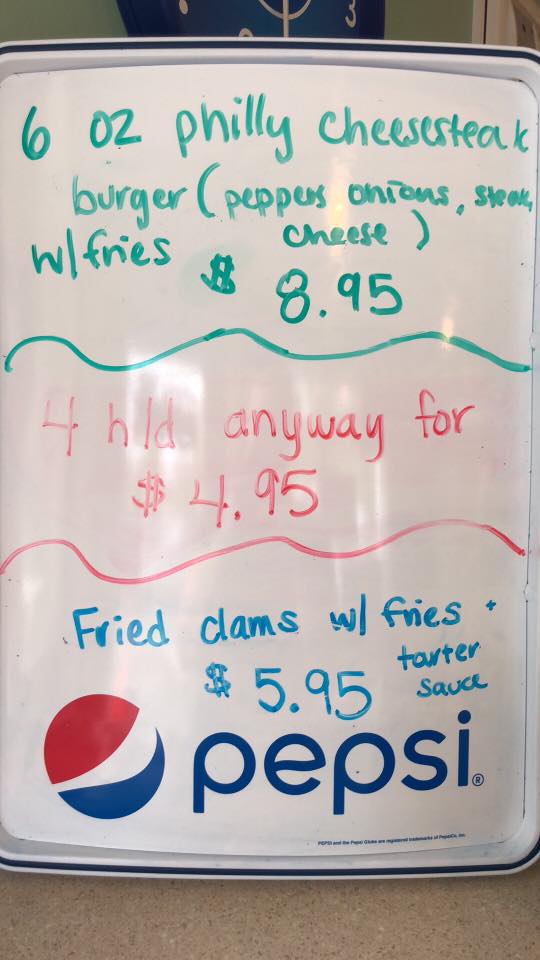 6 oz philly cheesesteak
burger (peppers onions, steak,
w/fries cheese)
$ 8.95
4 h/d anyway for
$ 4.95
Fried clams w/ fries +
tarter
$ 5.95 sauce
pepsi®
PEPSI and the Pepsi Globe are registered trademarks of PepsiCo, Inc.